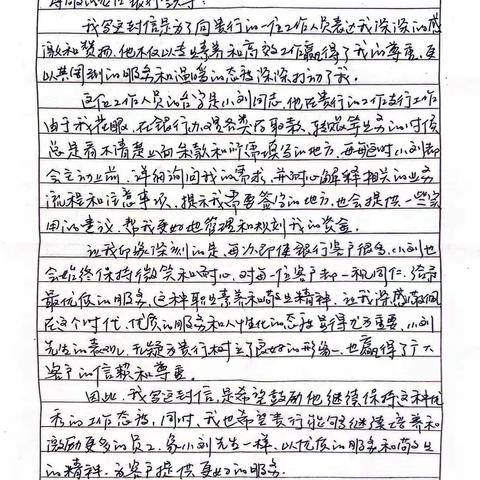 尊敬的××银行领导:
我写这封信是为了向贵行的一位工作人员表达我深深的感
激和赞扬。他不仅以专业素养和高效工作赢得了我的尊重,更
以其周到的服务和温暖的态度深深打动了我。
这位工作人员的名字是小刘同志,他在贵行的工作
由于我花眼,在银行办理各类存取款、转账等业务的时候
总是看不清楚上面条款和所需填写的地方,每每这时小刘都
会主动上前,详细询问我的需求,并耐心解释相关的业务
流程和注意事项,提示我需要签字的地方,也会提供一些实
用的建议,帮我更好地管理和规划我的资金。
让我印象深刻的是,每次即使银行客户很多,小刘也
会始终保持微笑和耐心,对每一位客户都一视同仁,给予
最优质的服务。这种职业素养和敬业精神,让我深感敬佩
在这个时代,优质的服务和人性化的态度显得尤为重要,小刘
先生的表现,无疑为贵行树立了良好的形象,也赢得了广大
客户的信赖和尊重。
因此,我写这封信,是希望鼓励他继续保持这种优
秀的工作态度,同时,我也希望贵行能够继续培养和
激励更多的员工,象小刘先生一样,以优质的服务和敬业
的精神,为客户提供更好的服务.